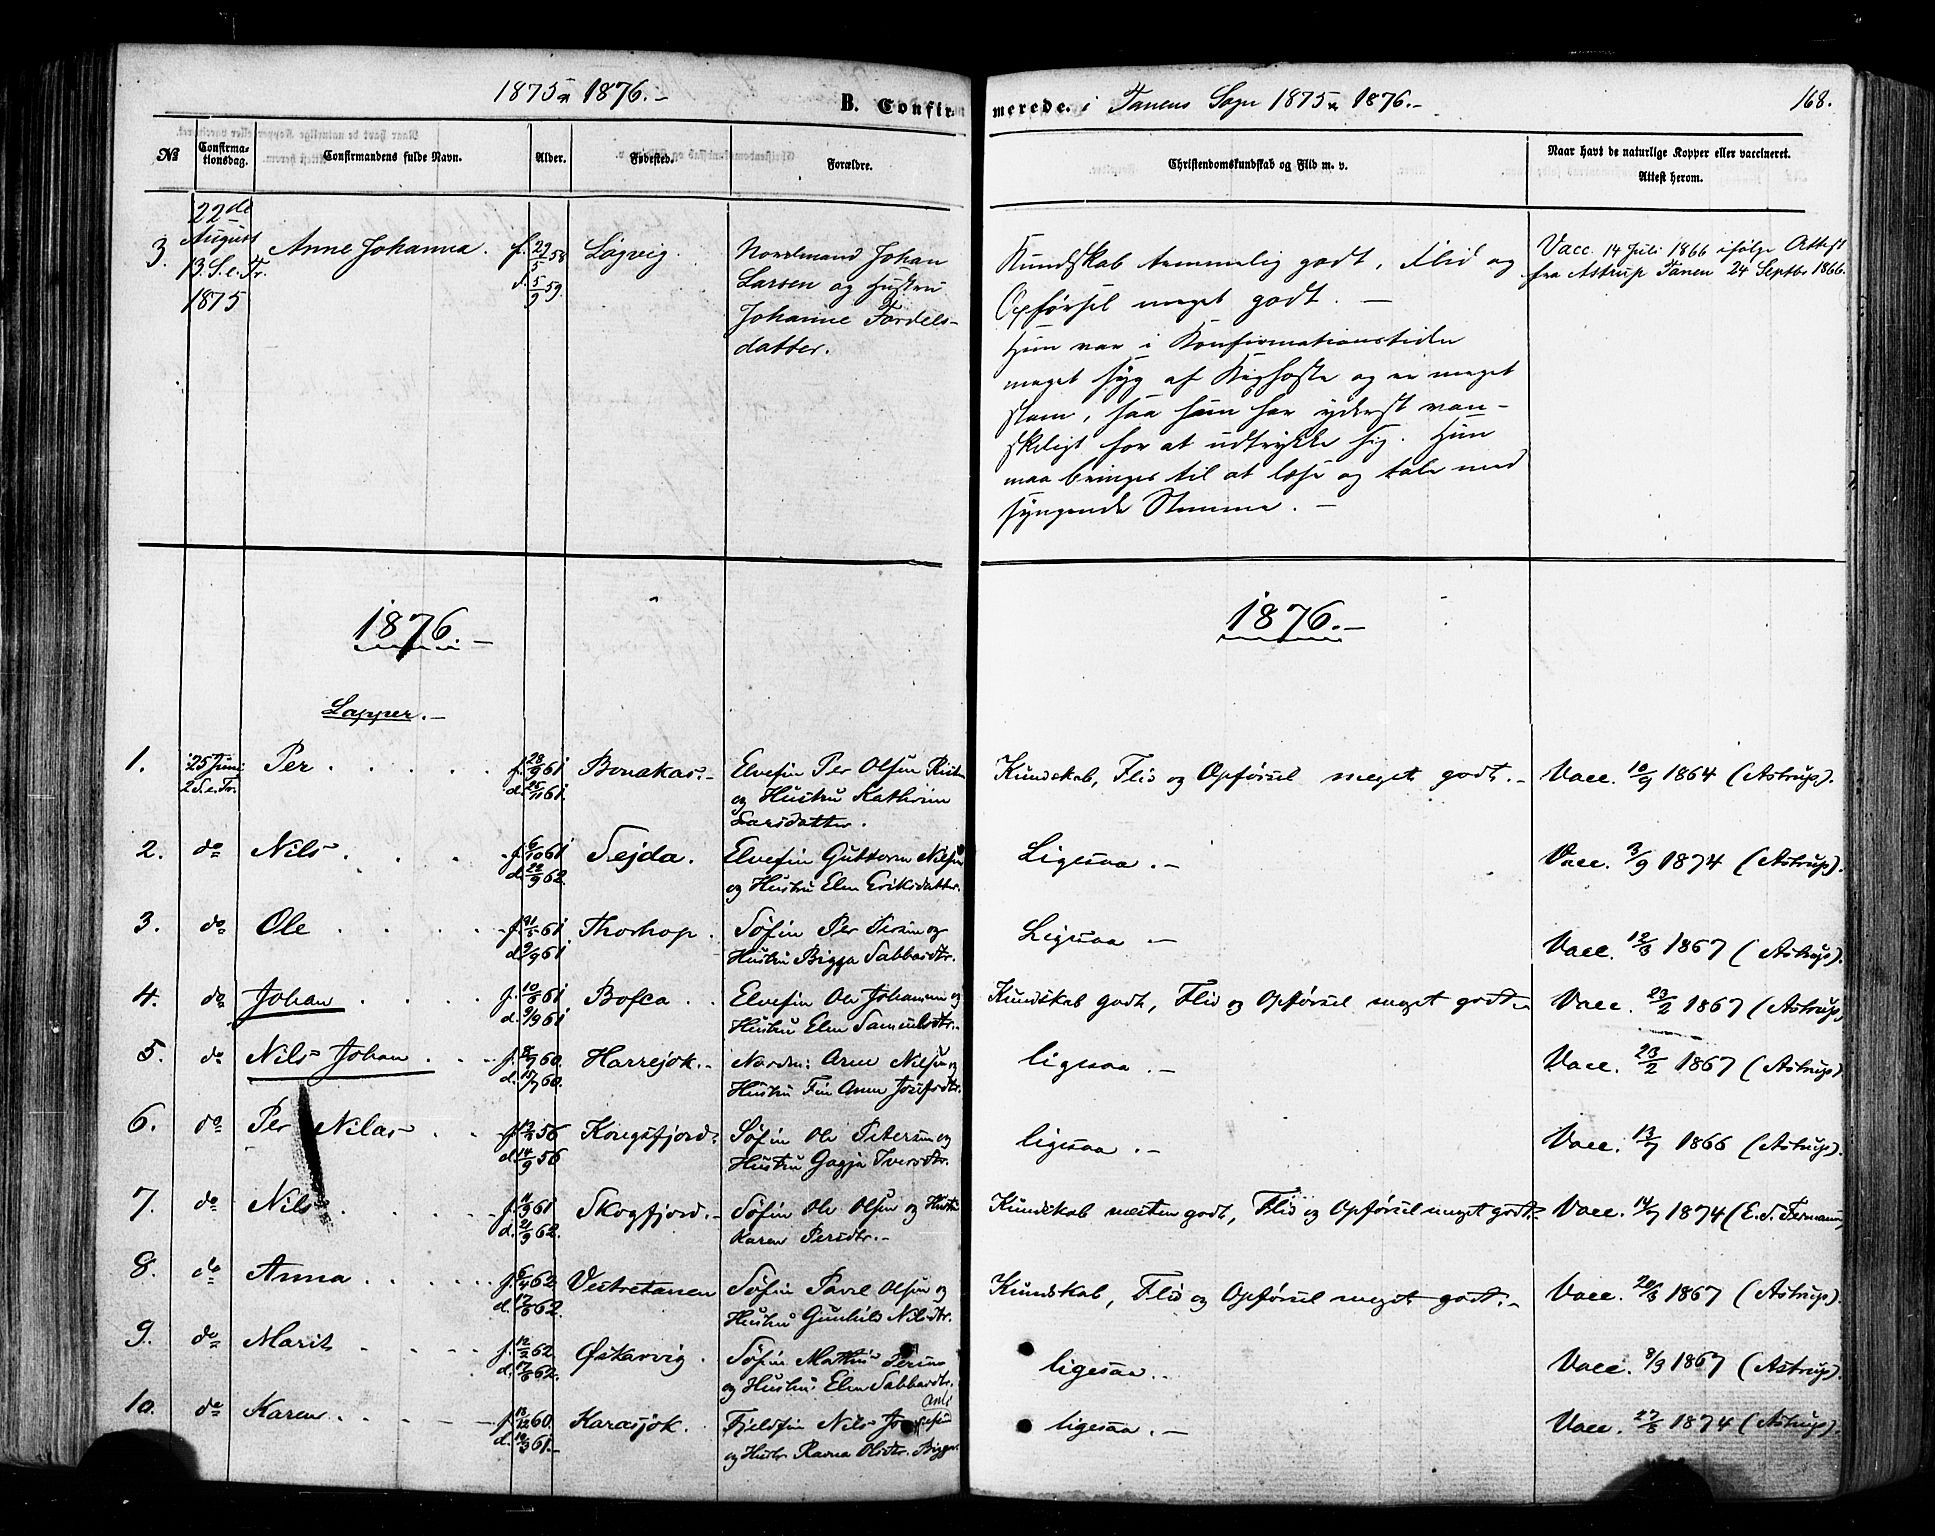 1875 & 1876.-
B. Confirmerede. i Tanens Sogn 1875 & 1876.-
168.
No
Confirmationsdag.
Confirmandens fulde Navn.
Alder.
Fødested.
Forældre.
Christendomskundskab og Flid m. v.
Naar havt de naturlige Kopper eller vaccineret.
Attest herom.
3.
22de
August
13. S. e. Tr.
1875
Anne Johanna.
f. 29/5 58
d. 5/9 59.
Løgvig.
Nordmand Johan
Larsen og Hustru
Johanne Fordels-
datter.
Kundskab temmelig godt, Flid og
Opførsel meget godt. -
Hun var i Konfirmationstiden
meget syg af Kighoste og er meget
stam, saa hun har yderst van-
skeligt for at udtrykke sig. Hun
maa bringes til at læse og tale med
syngende Stemme. -
Vacc. 14 Juli 1866 ifølge Attest
fra Astrup Tanen 24 Septbr 1866.
1876.-
1876.-
Lapper.-
1. 25 Juni Per f. 28/9 61 Bonakas.- Elvefin Per Olsen
2 S. e. Tr. d. 61.
og Hustru Kathrine
Larsdatter.
Kundskab, Flid og Opførsel meget godt.- Vacc. 10/9 1864 (Astrup).
2. do Nils f. 6/10 61 Sejda. Elvefin Guttorm Nilsen
d. 22/9 62. og Hustru Elen Eriksdatter.
Ligesaa.- Vacc. 3/9 1874 (Astrup).
3. do Ole f. 61 Thorhop. Søfin Per Persen og
d. 9/9 61 Hustru Bigga Sabbasdtr.
Ligesaa.- Vacc. 12/3 1867 (Astrup).
4. do Johan f. 61 Bofca. Elvefin Ole Johannesen og
d. 61 Hustru Elen Samuelsdtr.-
Kundskab godt, Flid og Opførsel meget godt.- Vacc. 23/2 1867 (Astrup)
5. do Nils Johan f. 60. Harrejok.- Nordm: Arne Nilsen og
d. 60. Hustru Fin Anne Josefsdtr.
ligesaa.- Vacc. 23/2 1867 (Astrup)
6. do Per Nilas f. 56 Kongsfjord. Søfin Ole Petersen og
d. 14/9 56 Hustru Gagja Iversdtr.
ligesaa.- Vacc. 13/7 1866 (Astrup).
7. do Nils f. 61 Skogfjord.- Søfin Ole Olsen og Hustru
d. 21/9 62. Karen Persdtr.-
Kundskab næsten godt, Flid og Opførsel meget godt.- Vacc. 14/7 1874 (E. S. Fermann)
8. do Anna f. 6/4 62 Vestretanen Søfin Povel Olsen og
d. 62. Hustru Gunhild Nilsdtr.
Kundskab, Flid og Opførsel meget godt.- Vacc. 20/3 1867 (Astrup).
9. do Marit f. 12/2 62. Øskarvig. Søfin Mathis Persen
d. 62. og Hustru Elen Sabbasdtr.
ligesaa.. Vacc. 8/3 1867 (Astrup).
10. do Karen f. 60. Karasjok. Fjeldfin Nils
d. 61.- og Hustr. Ravna Olsdtr. Bigga
ligesaa.- Vacc. 27/8 1874 (Astrup).